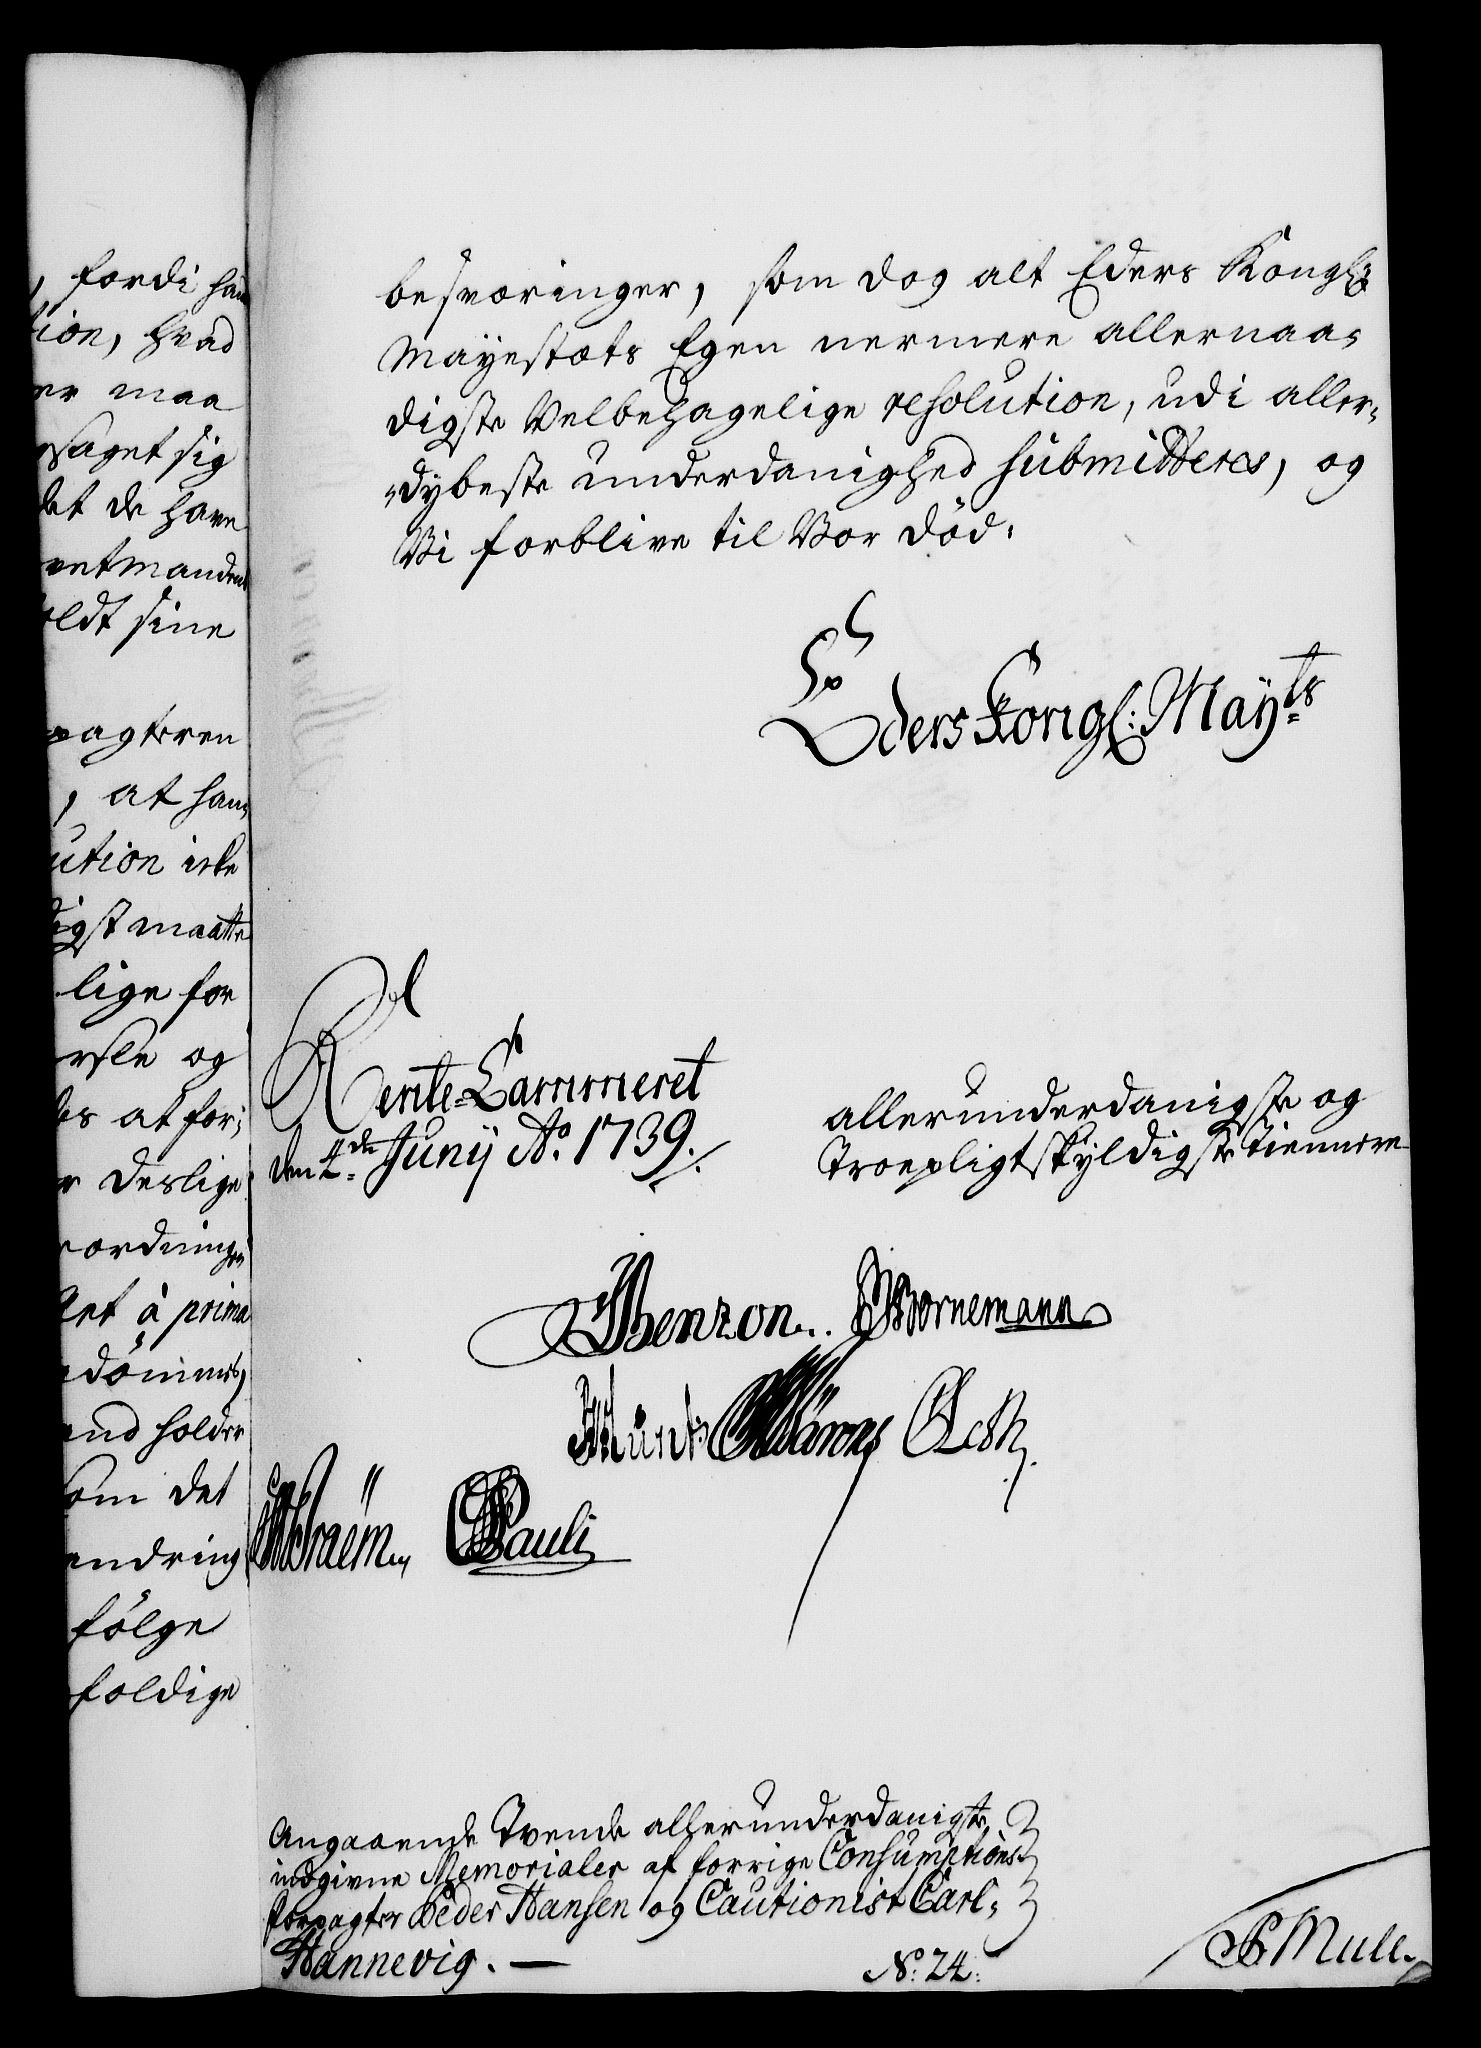 , fordi han
tion, hvad
er maa
saget sig
det de have
oldt sine
pagteren
, at han
ution icke
digst maatte
lige for
og
at for:
deslige
ordningen
à prima
dömmes,
and holder
som det
endring
fölge
foldige
besværinger, som dog alt Eders Kongl:
Mayestæts Egen nermere allernaa-
digste Velbehagelige resolution, udi aller-
dybeste underdanighed submitteres, og
Vi forblive til Vor död.
Eders Kongl: Mayts
Rente-Cammeret
den 4de Junij Ao. 1739.
allerunderdanigste og
Troepligtskyldigste tiennere
Benzon. Bornemann
Pauli
Angaaende Tvende allerunderdanigste
indgivne Memorialer af forrige Consumptions-
forpagter Peder Hansen og Cautionist Carl
Hannevig. —
No: 24:
Mull.